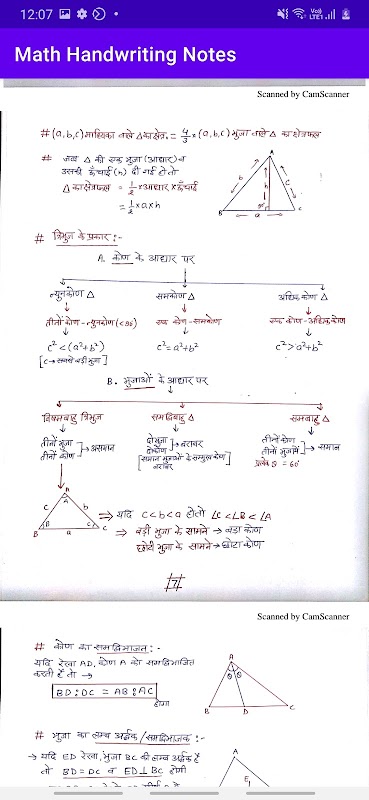 12:07
Vo))
LTE1
Math Handwriting Notes
Scanned by CamScanner
# (a,b,c) माध्यिका वाले Δ का क्षेत्र. = 4/3 × (a,b,c) भुजा वाले Δ का क्षेत्रफल
# जब Δ की एक भुजा (आधार) व
उसकी ऊँचाई (h) दी गई हो तो
Δ का क्षेत्रफल = 1/2 × आधार × ऊँचाई
= 1/2 × a × h
A
b
h
c
B
a
C
# त्रिभुज के प्रकार :-
A. कोण के आधार पर
न्यूनकोण Δ
समकोण Δ
अधिक कोण Δ
तीनों कोण - न्यूनकोण (<90)
एक कोण - समकोण
एक कोण - अधिककोण
c² < (a²+b²)
c² = a²+b²
c² > a²+b²
[c → सबसे बड़ी भुजा]
B. भुजाओं के आधार पर
विषमबाहु त्रिभुज
समद्विबाहु Δ
समबाहु Δ
तीनों भुजा
तीनों कोण
→ असमान
दो भुजा
दो कोण
→ बराबर
[समान भुजाओं के सम्मुख कोण
बराबर]
तीनों कोण
तीनों भुजायें
→ समान
प्रत्येक θ = 60°
A
A
c
b
B
B
a
C
C
⇒ यदि c < b < a हो तो ∠C < ∠B < ∠A
⇒ बड़ी भुजा के सामने → बड़ा कोण
छोटी भुजा के सामने → छोटा कोण
Scanned by CamScanner
# कोण का समद्विभाजन :-
यदि रेखा AD, कोण A को समद्विभाजित
करती है तो →
BD : DC = AB : AC
होगा
A
θ
θ
B
D
C
# भुजा का लम्ब अर्द्धक / समद्विभाजक :-
→ यदि ED रेखा, भुजा BC की लम्ब अर्द्धक है
तो BD = DC व ED ⊥ BC होगी
A
E